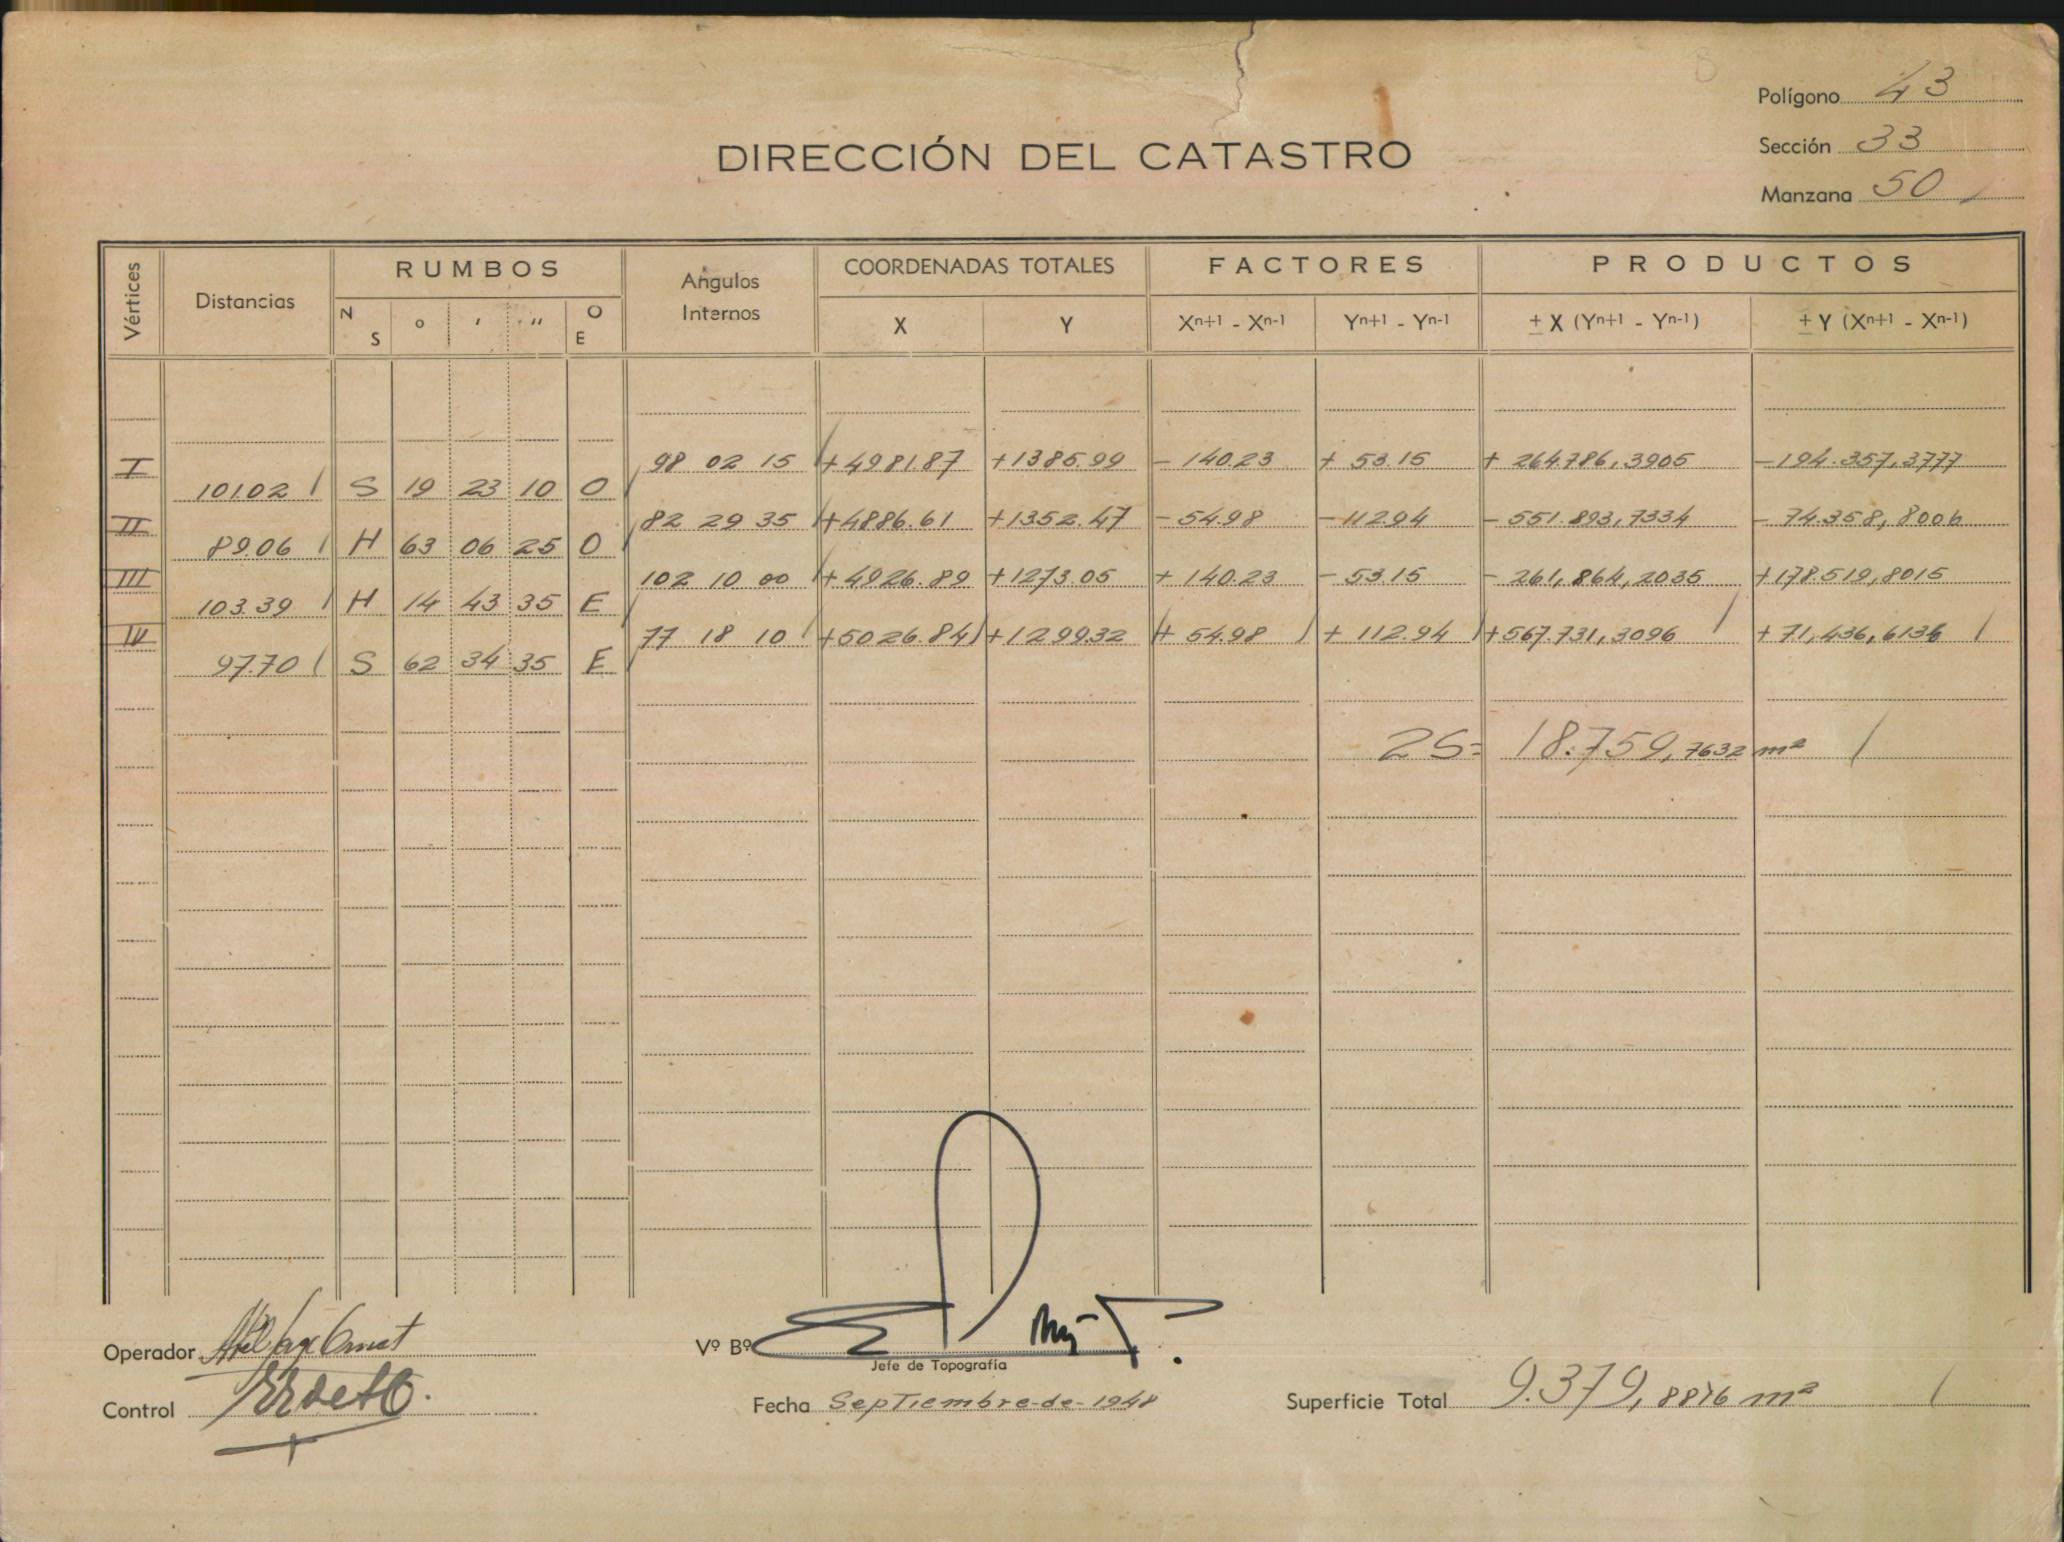 Polígono 43
DIRECCIÓN DEL CATASTRO
Sección 33
Manzana 50
Vértices
Distancias
RUMBOS
N S ° ' " O E
Angulos Internos
COORDENADAS TOTALES
X Y
FACTORES
Xn+1 - Xn-1 Yn+1 - Yn-1
PRODUCTOS
± X (Yn+1 - Yn-1) ± Y (Xn+1 - Xn-1)
I 98 02 15 +4981.87 +1385.99 - 140.23 + 53.15 + 264.786,3905 -194.357,3777
101.02 S 19 23 10 O
II 82 29 35 +4886.61 +1352.47 - 54.98 - 112.94 - 551.893,7334 - 74.358,8006
89.06 N 63 06 25 O
III 102 10 00 +4926.89 +1273.05 + 140.23 - 53.15 - 261,864,2035 +178.519,8015
103.39 N 14 43 35 E
IV 77 18 10 +5026.84 +1299.32 + 54.98 + 112.94 +567.731,3096 +71,436,6136
97.70 S 62 34 35 E
2S= 18.759,7632 m²
Operador
Vº Bº
Jefe de Topografía
Control
Fecha Septiembre-de-1948
Superficie Total 9.379,8816 m²